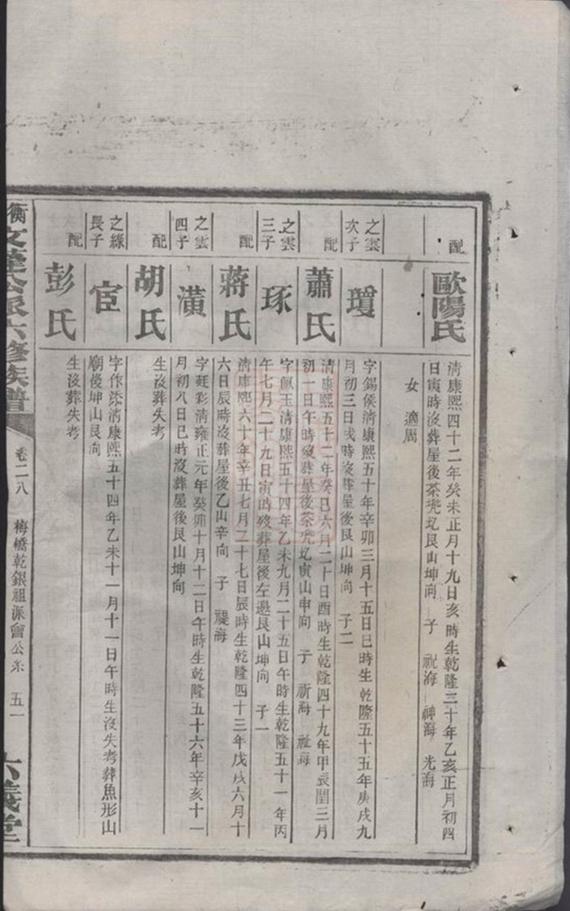 配
歐陽氏
清康熙四十二年癸未正月十九日亥時生乾隆三十年乙亥正月初四
日寅時沒葬屋後茶兜辺艮山坤向 子 祝海 神海 光海
女 適周
之雲
次子
瓊
字錫侯清康熙五十年辛卯三月十五日巳時生乾隆五十五年庚戌九
月初三日戌時沒葬屋後艮山坤向 子二
配
蕭氏
清康熙五十二年癸巳六月二十日酉時生乾隆四十九年甲辰閏三月
初一日午時沒葬屋後茶兜辺寅山申向 子 新海 祉海
之雲
三子
琢
字佩玉清康熙五十四年乙未九月二十五日午時生乾隆五十一年丙
午七月二十九日寅時歿葬屋後左邊艮山坤向 子一
配
蔣氏
清康熙六十年辛丑七月二十七日辰時生乾隆四十三年戊戌六月十
六日辰時沒葬屋後乙山辛向 子 禔海
之雲
四子
潢
字廷彩清雍正元年癸卯十月十二日午時生乾隆五十六年辛亥十一
月初八日巳時沒葬屋後艮山坤向
配
胡氏
生沒葬失考
之綠
長子
宦
字作 清康熙五十四年乙未十一月十一日午時生沒失考葬魚形山
廟後坤山艮向
配
彭氏
生沒葬失考
衡 文蓮公派六修族譜 卷二八 梅橋乾銀祖派會公系 五一 六義堂